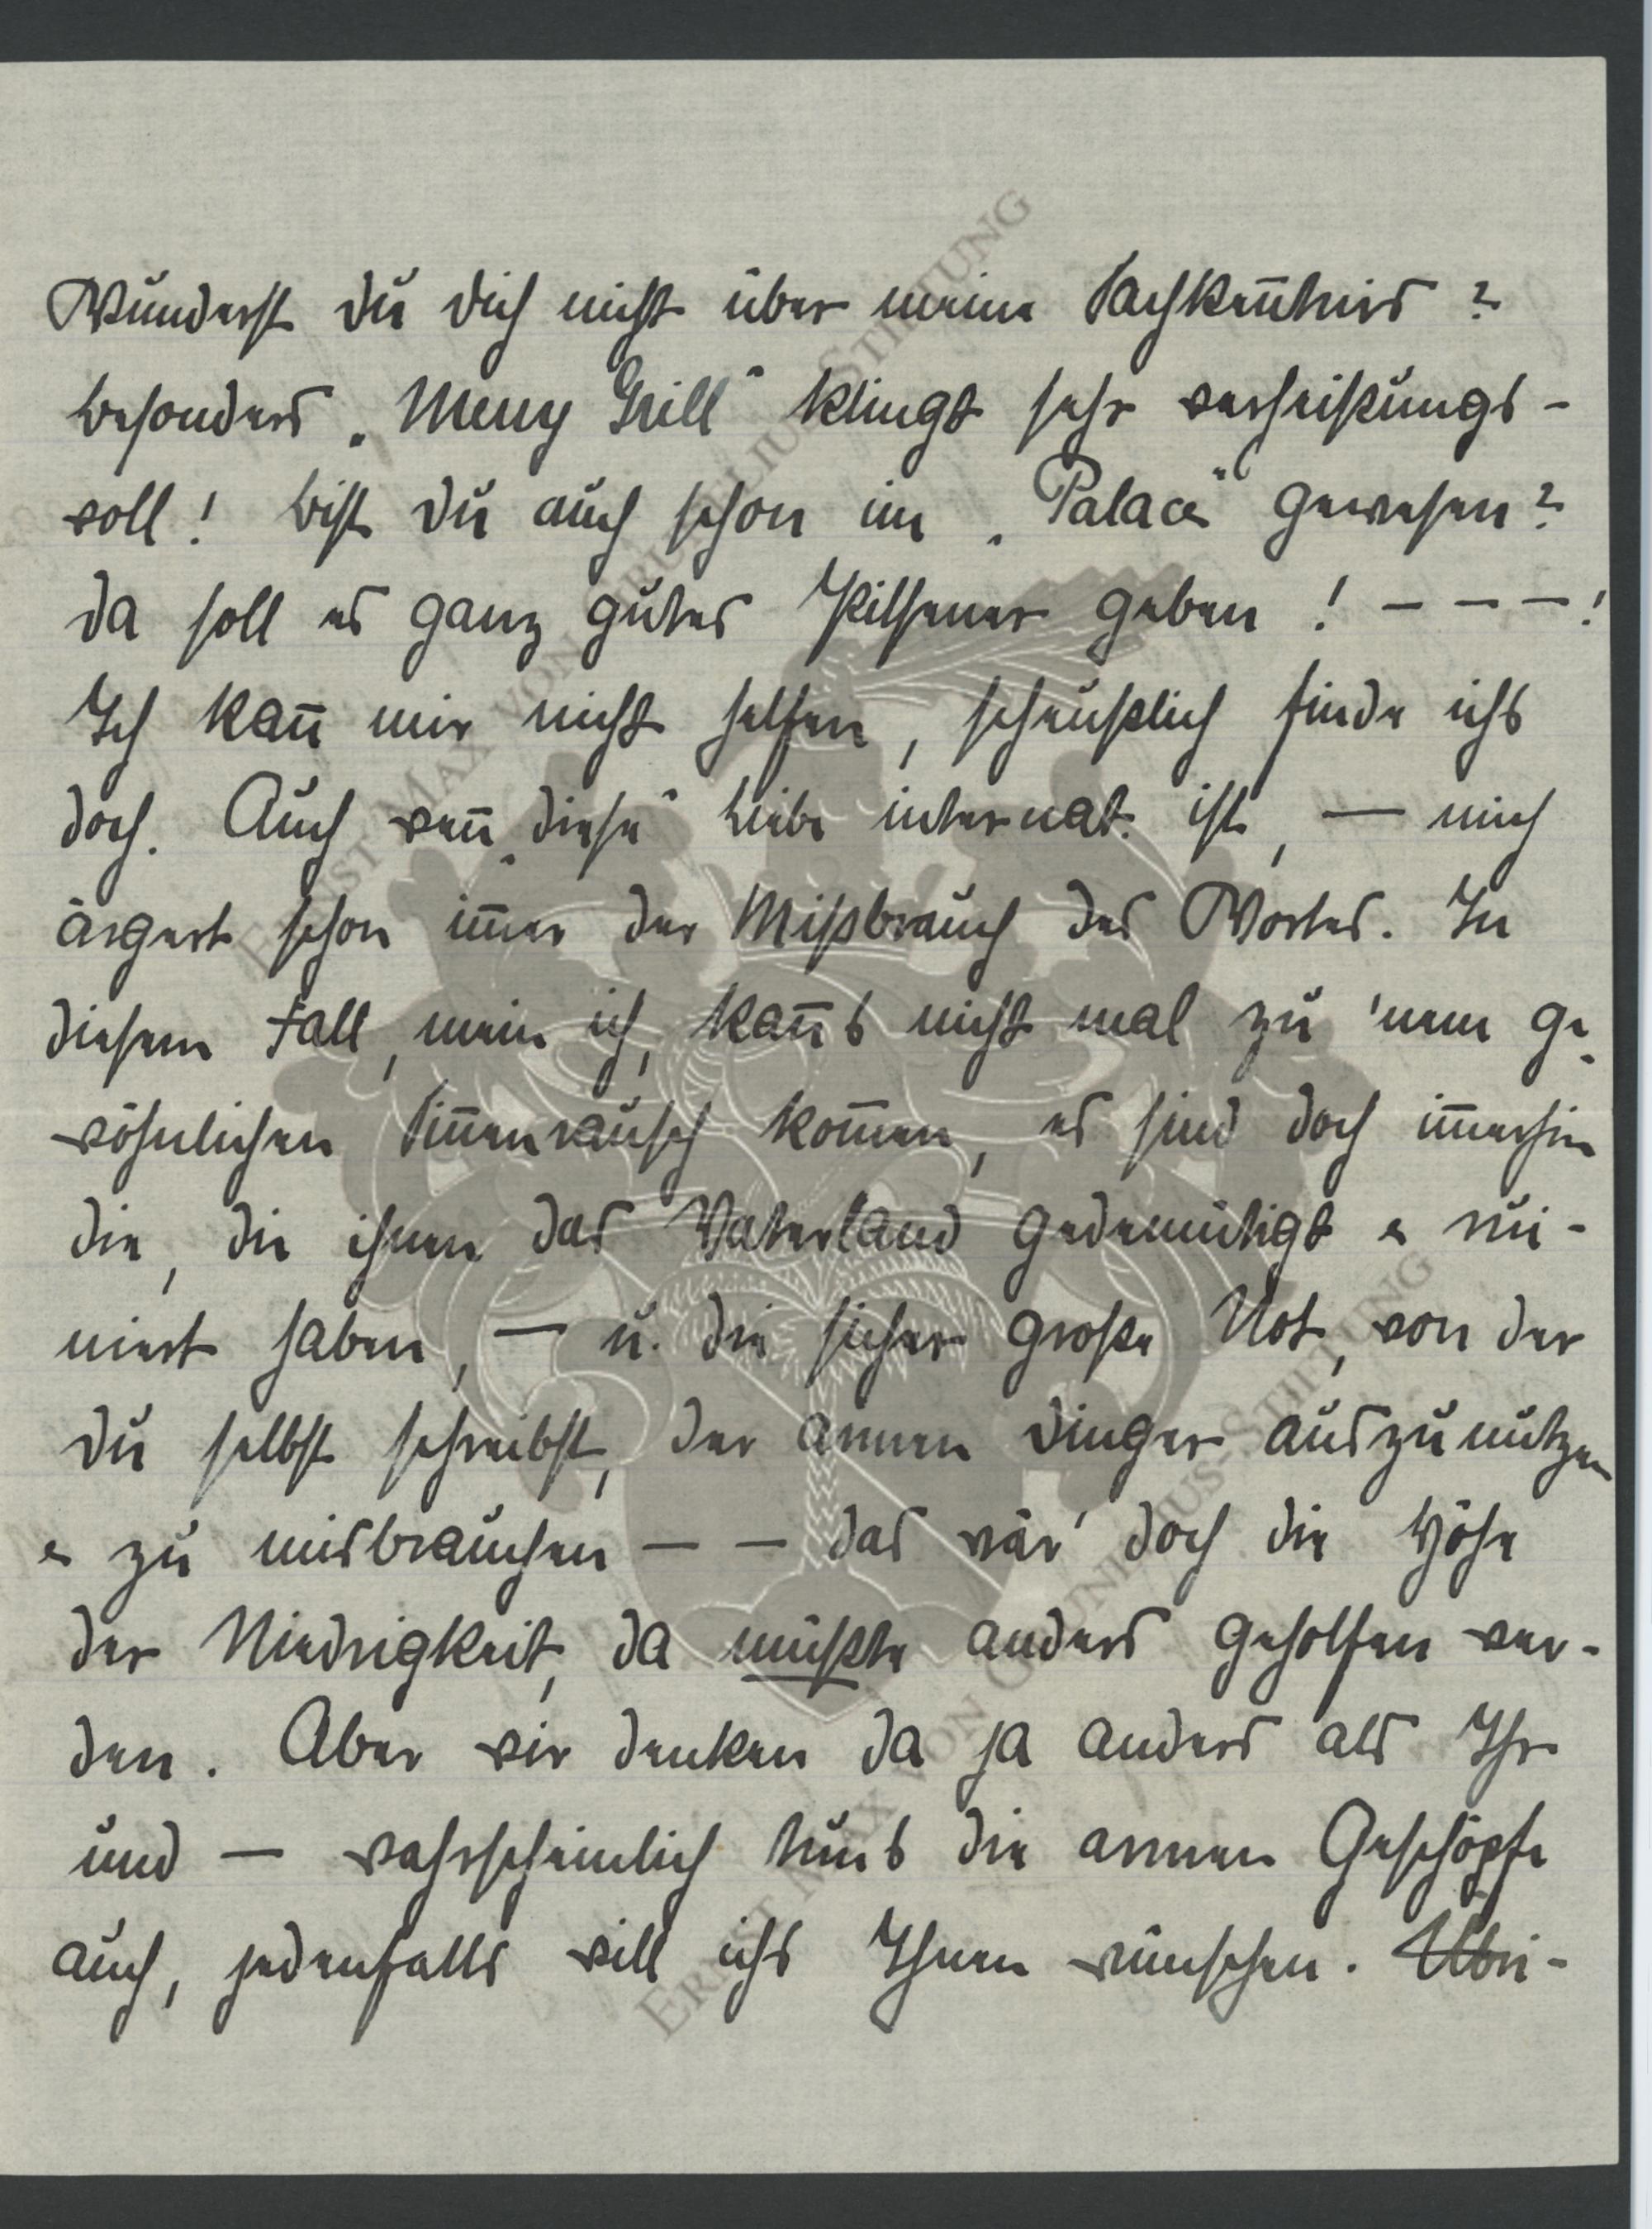 Wunderst du dich nicht über meine Sachkeñtnis?
besonders „Meny Grill" klingt sehr verheißungs-
voll! bist du auch schon im „Palace" gewesen?
da soll es ganz gutes Pilsener geben! – – – !
Ich kañ mir nicht helfen, scheußlich finde ichs
doch. Auch weñ „diese" Liebe internat. ist, — mich
ärgert schon im̃er der Mißbrauch des Wortes. In
diesem Fall, mein ich, kañs nicht mal zu 'nem ge-
wöhnlichen Siñenrausch kom̃en, es sind doch im̃erhin
die, die ihnen das Vaterland gedemütigt & rui-
niert haben, — u. die sicher große Not, von der
du selbst schreibst, der armen Dinger auszunützen
& zu misbrauchen — — das wär' doch die Höhe
der Niedrigkeit, da müßte anders geholfen wer-
den. Aber wir denken da ja anders als Ihr
und — wahrscheinlich tuns die armen Geschöpfe
auch, jedenfalls will ichs Ihnen wünschen. Übri-
ERNST MAX VON GRUNELIUS-STIFTUNG
ERNST MAX VON GRUNELIUS-STIFTUNG